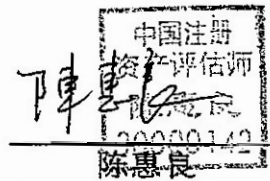 中国注册
资产评估师
陈惠良
20000142
陳惠良
陈惠良